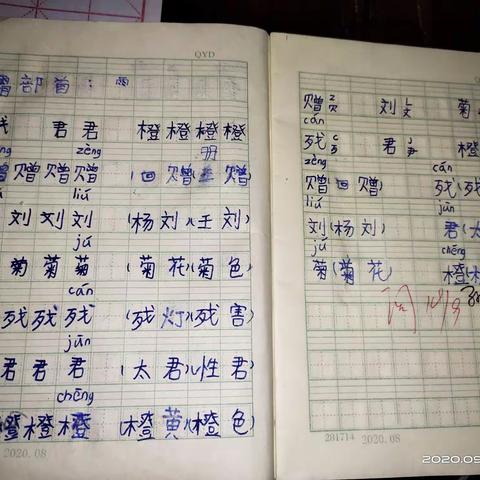 QYD
部首：雨
君君 橙橙橙橙
zèng 册
赠赠赠赠 (回赠 赠)
liú
刘刘刘 (杨刘)(王刘)
jú
菊菊菊 (菊花)(菊色)
cán
残残残 (残灯)(残害)
jūn
君君君 (太君)(性君)
chéng
橙橙橙 (橙黄)(橙色)
2020.08
赠 贝 刘 文 菊
cán
残 君 尹 橙
zèng cán
赠(回赠) 残(残
liú jūn
刘(杨刘) 君(太
jú chéng
菊(菊花) 橙(橙
阅 10/9
281714 2020.08
2020.09